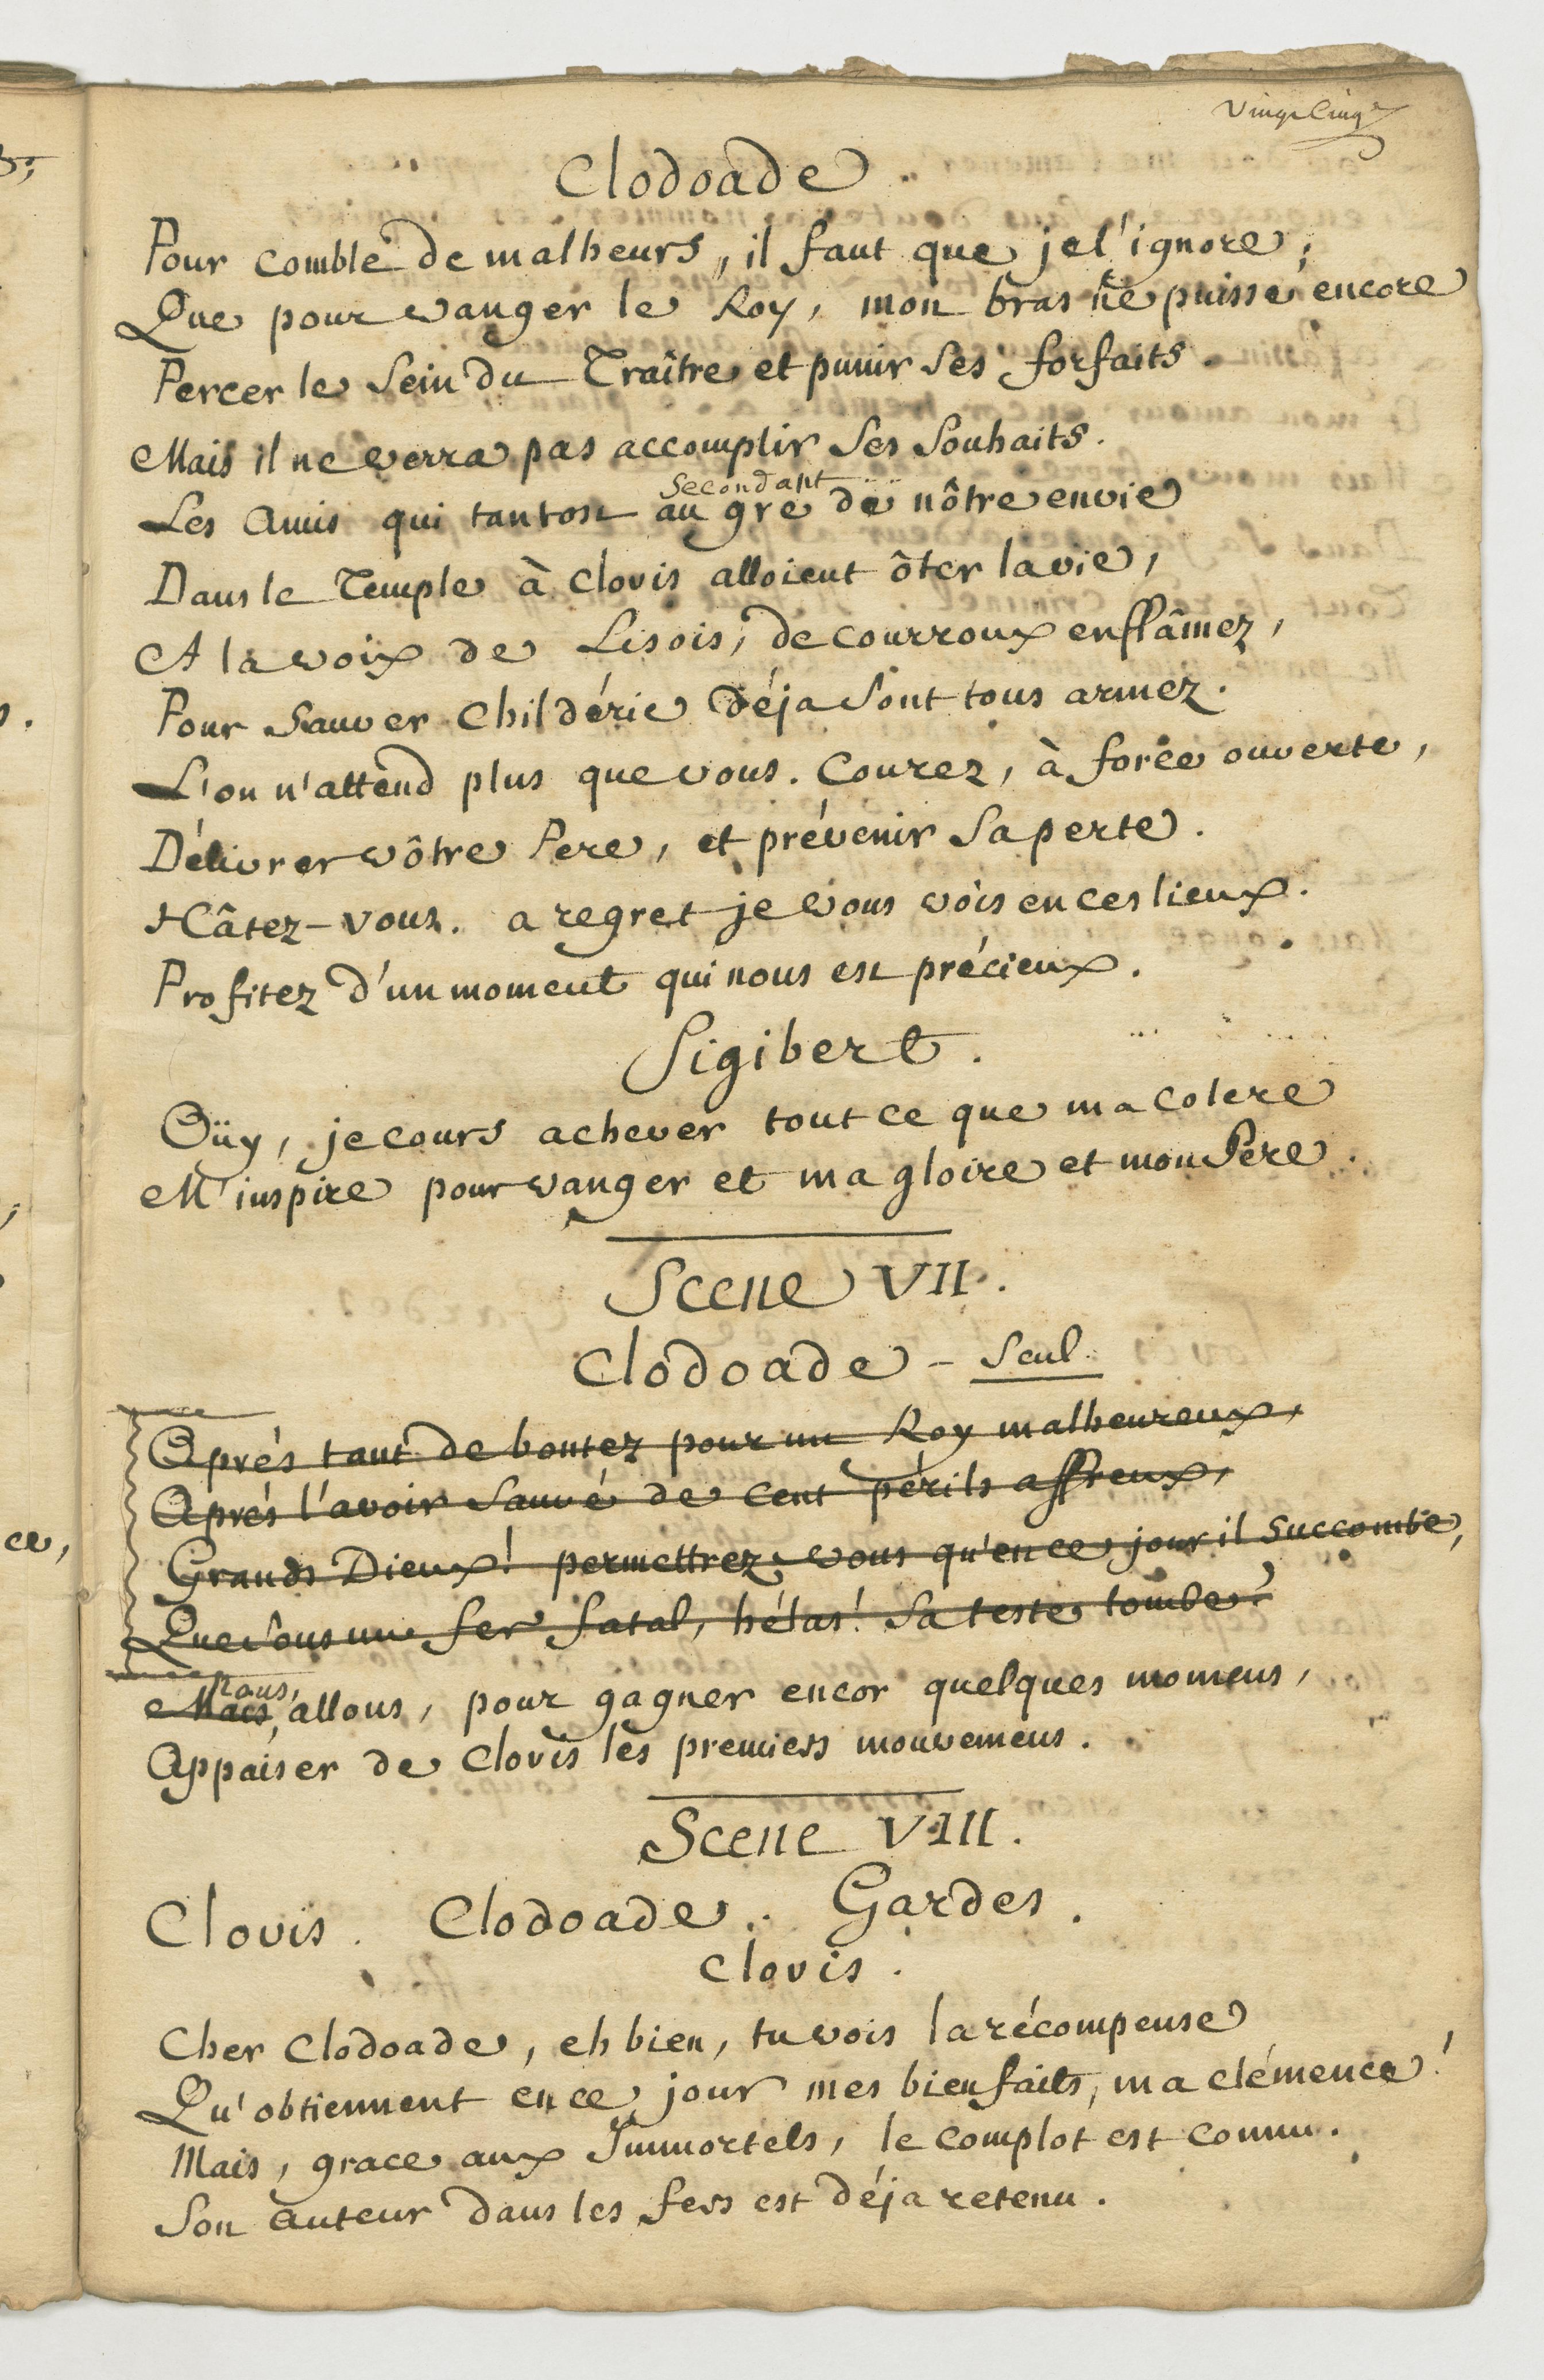 Vingt Cinq
Clodoade
Pour comble de malheurs, il faut que je l'ignore;
Que pour vanger le Roy, mon bras ne puisse encore
Percer le Sein du Traître et punir Ses forfaits.
Mais il ne verra pas accomplir Ses Souhaits.
Secondant
Les Amis qui tantost au gré de nôtre envie
Dans le Temple à Clovis alloient ôter la vie,
A la voix de Lisois, de courroux enflâmez,
Pour Sauver Childéric déja Sont tous armez.
L'on n'attend plus que vous. Courez, à force ouverte,
Délivrer vôtre Pere, et prévenir Sa perte.
Hâtez-vous. a regret je vous vois en ces lieux.
Profitez d'un moment qui nous est précieux.
Sigibert.
Oüy, je cours achever tout ce que ma colere
M'inspire pour vanger et ma gloire et mon Pere.
Scene VII.
Clodoade - Seul
Aprés tant de bontez pour un Roy malheureux,
Aprés l'avoir Sauvé de Cent périls affreux,
Grands Dieux! permettrez vous qu'en ce jour il Succombe,
Que Sous un fer fatal, hélas! Sa teste tombe?
Nous,
Mais, allons, pour gagner encor quelques momens,
Appaiser de Clovis les premiers mouvemens.
Scene VIII.
Clovis. Clodoade. Gardes.
Clovis.
Cher Clodoade, eh bien, tu vois la récompense
Qu'obtiennent en ce jour mes bienfaits, ma clémence!
Mais, grace aux Immortels, le complot est connu.
Son auteur dans les fers est déja retenu.